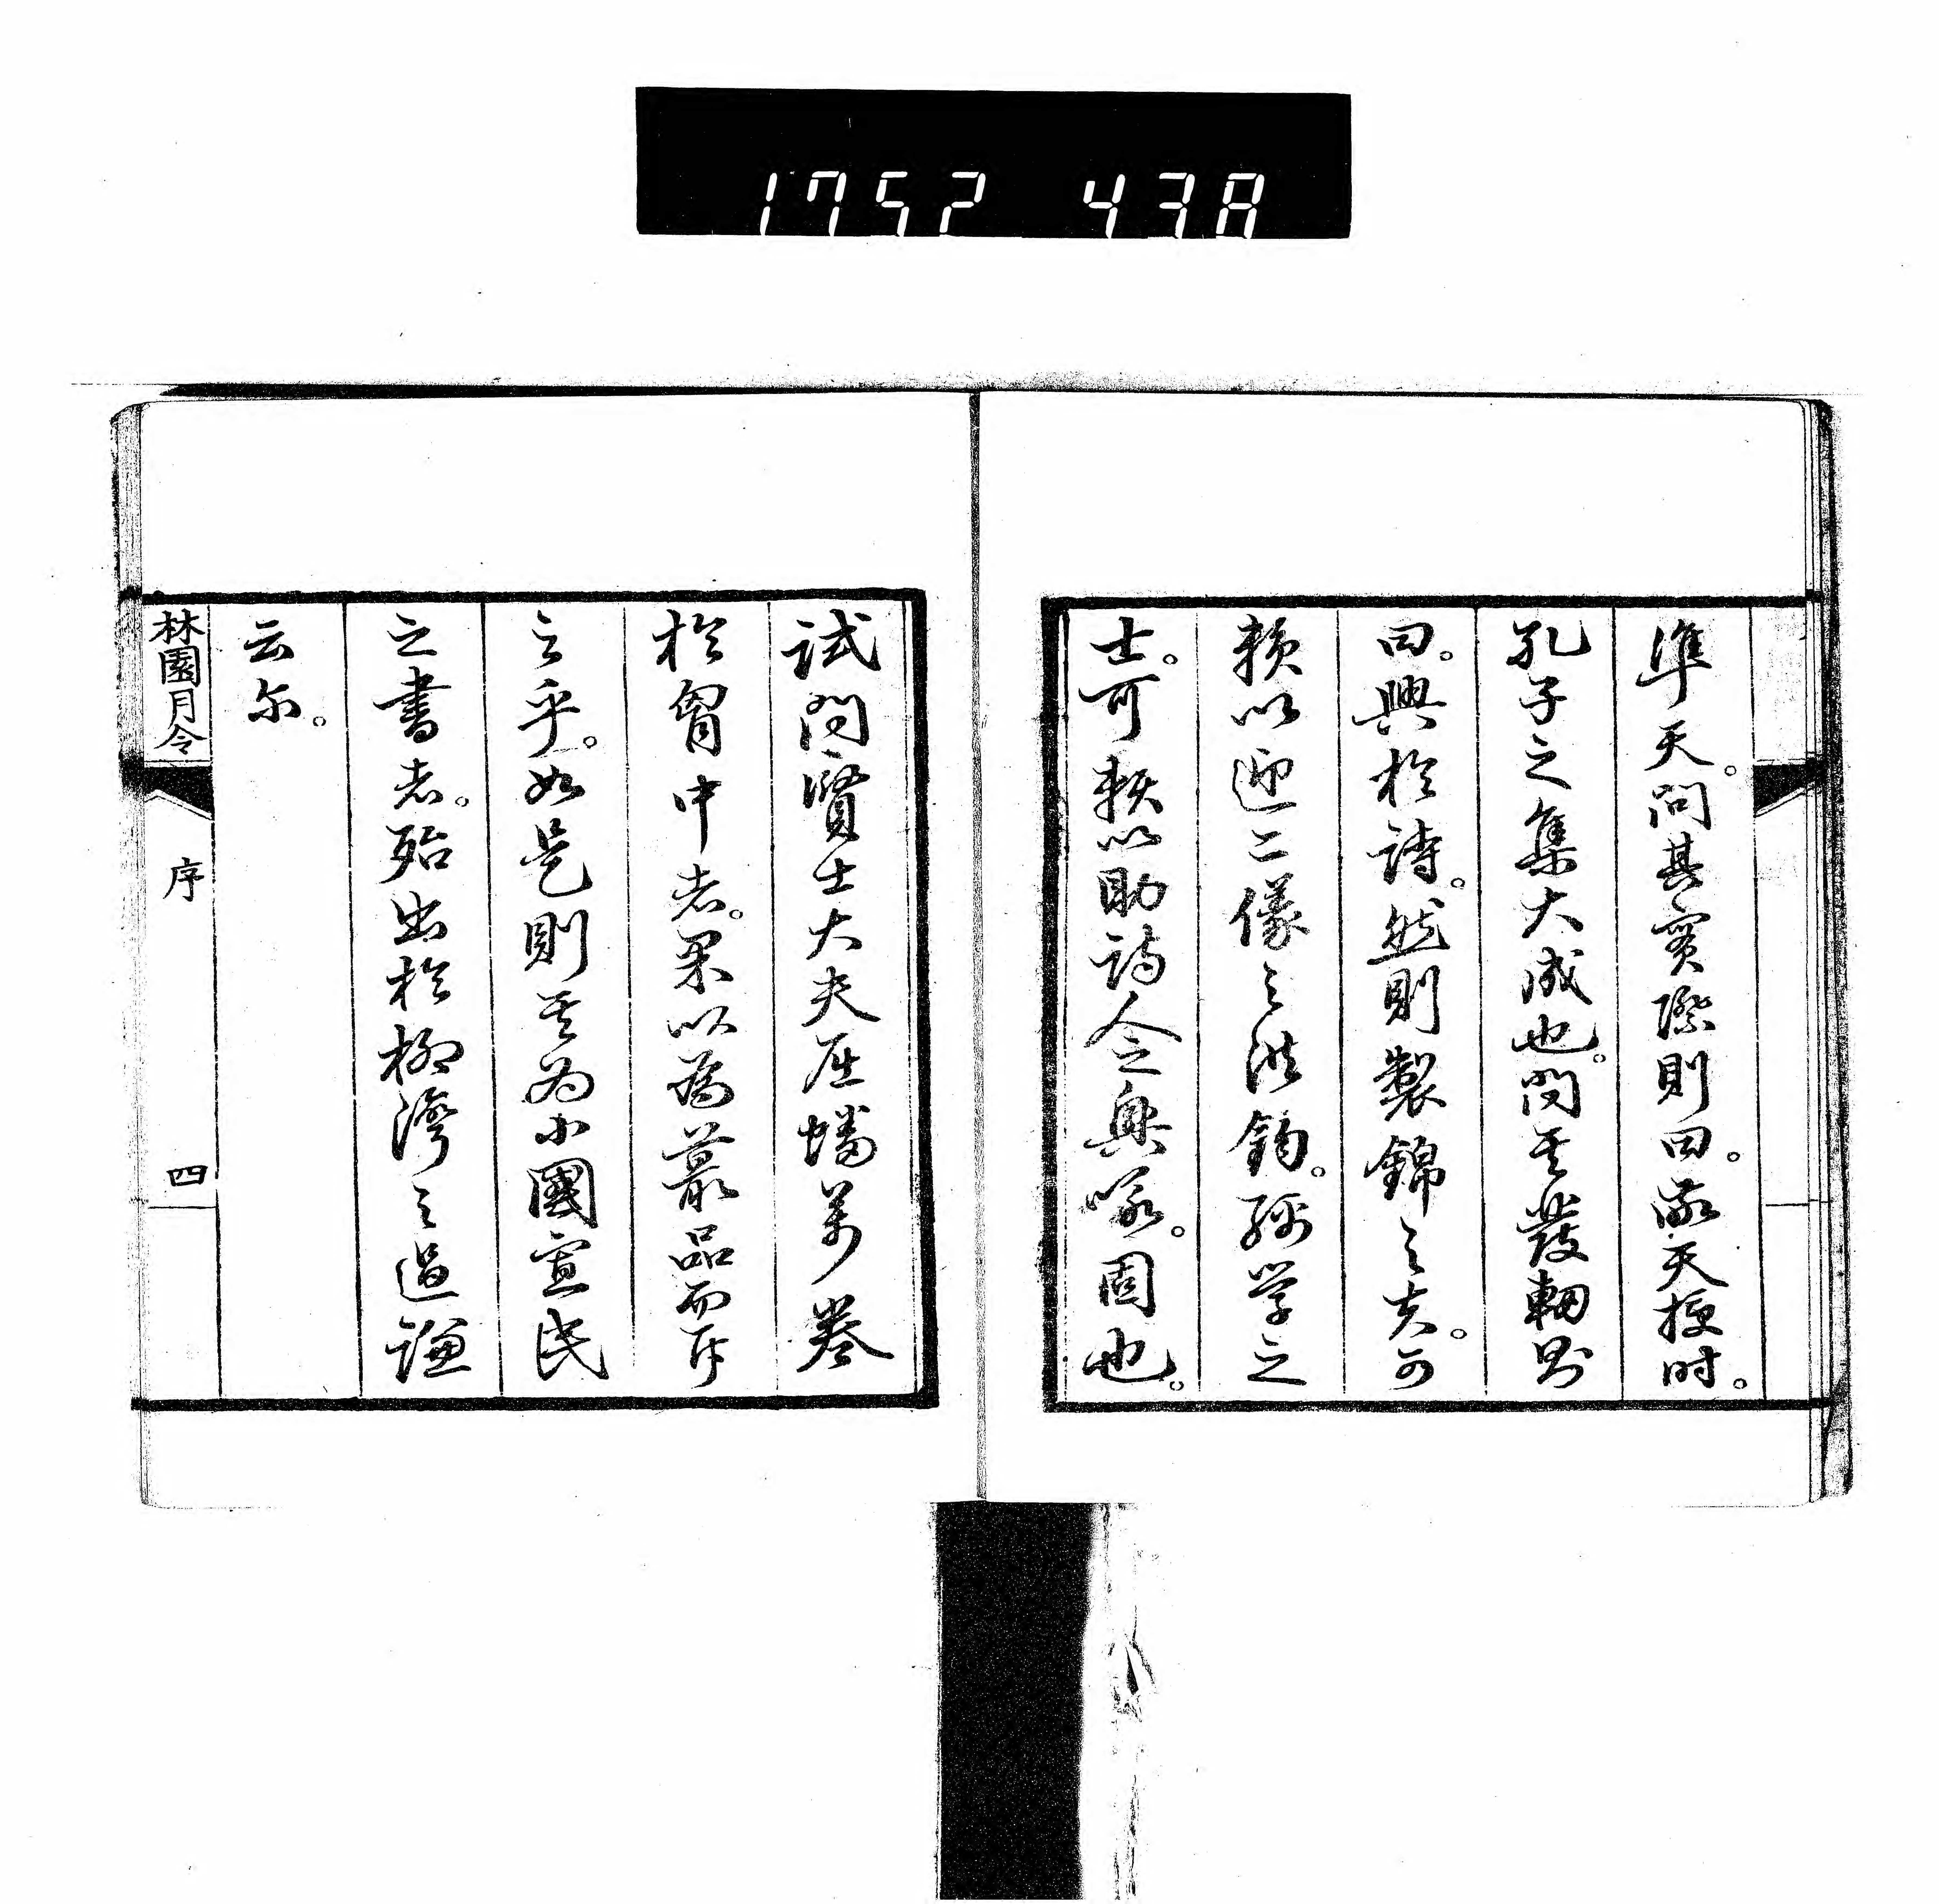 1752 438
準天。問其實際則曰。敬天授时。
孔子之集大成也。問其發軔則
曰。興於詩。然則製錦之夫。可
賴以迎二儀之洪鈞。好学之
士。可賴以助詩人之興咏。固也。
試問賢士大夫屈蟠萬卷
於胷中者。果以為叢品而斥
之乎。如是則其為小國寡民
之書者。殆出於柳灣之過謙
云尔。
林園月令
序
四